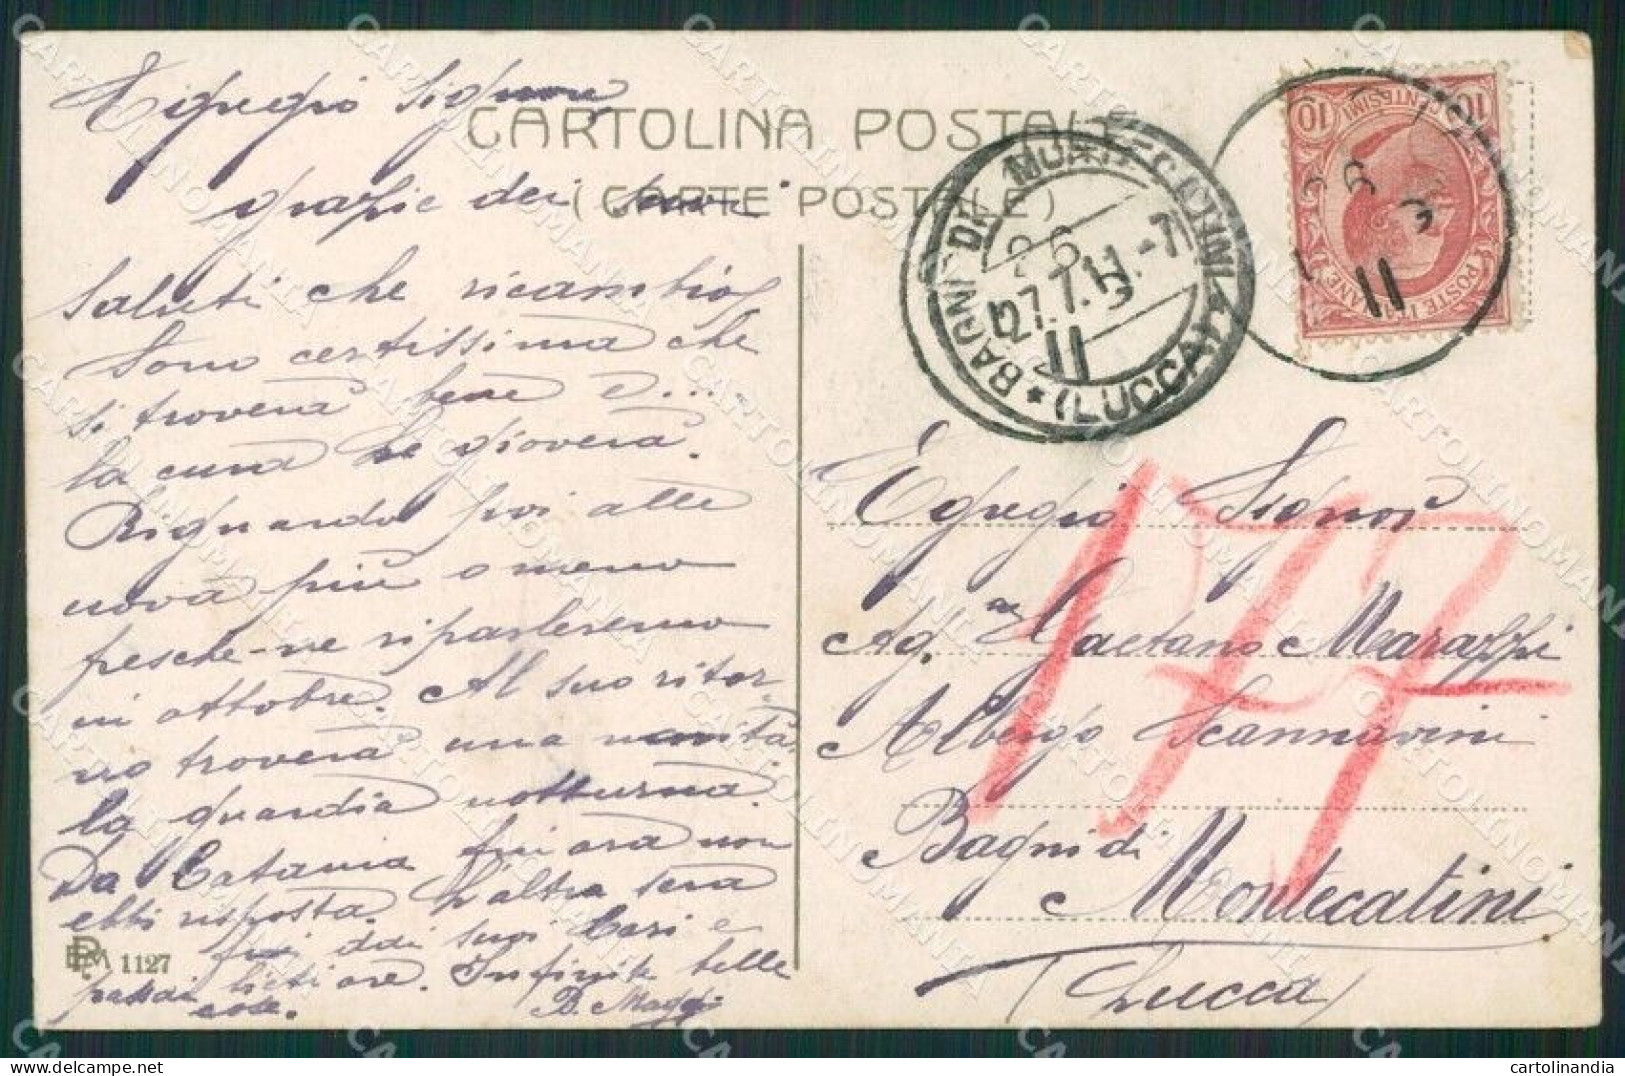 Egregio Signore
CARTOLINA POSTALE
grazie dei suoi
(CARTE POSTALE)
saluti che ricambio
Sono certissima che
si troverà bene e...
la cura le gioverà.
Riguardo poi alle
nova più o meno
fresche-ne riparleremo
in ottobre. Al suo ritor-
no troverà una novità.
la guardia notturna.
Da Catania fin ora non
ebbi risposta. L'altra sera
fui dai suoi Cari e
passai liete ore. Infinite belle
cose.
B. Maggi
1127
BAGNI DI MONTECATINI
(LUCCA)
27.7.11.-7
11
10 CENTESIMI 10
POSTE ITALIANE
11
177
Egregio Signor
Ag. Gaetano Marazzi
Albergo Scannavini
Bagni di
Montecatini
(Lucca)
CARTOLINOMANIA
cartolinandia